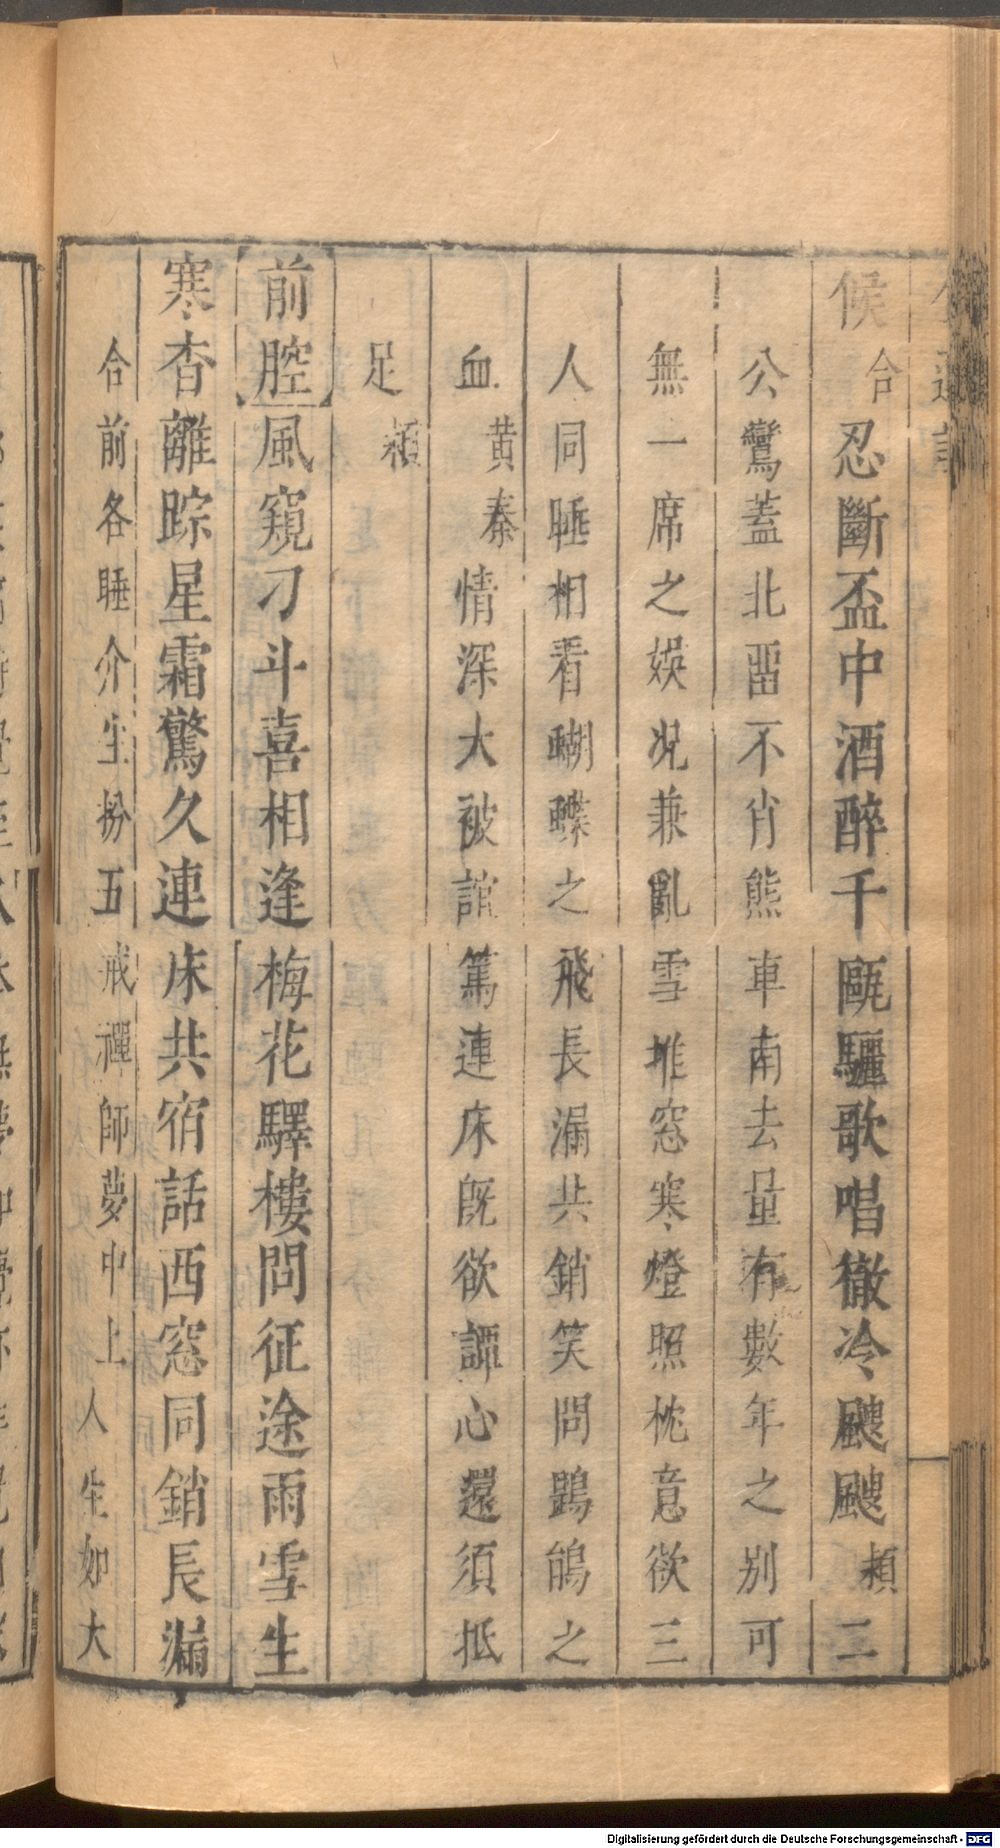 候合忍斷盃中酒醉千甌驪歌唱徹冷颼颼頛二
公鸞蓋北畱不肖熊車南去量有數年之别可
無一席之娛况兼亂雪堆窓寒燈照枕意欲三
人同睡相看蝴蝶之飛長漏共銷笑問鵾鵃之
血黄秦情深大被誼篤連床旣欲譚心還須抵
足頛
前腔風窺刁斗喜相逢梅花驛樓問征途雨雪生
寒杳離踪星霜驚久連床共宿話西窓同銷長漏
合前各睡介生扮五戒禪師夢中上人生如大
Digitalisierung gefördert durch die Deutsche Forschungsgemeinschaft - DFG